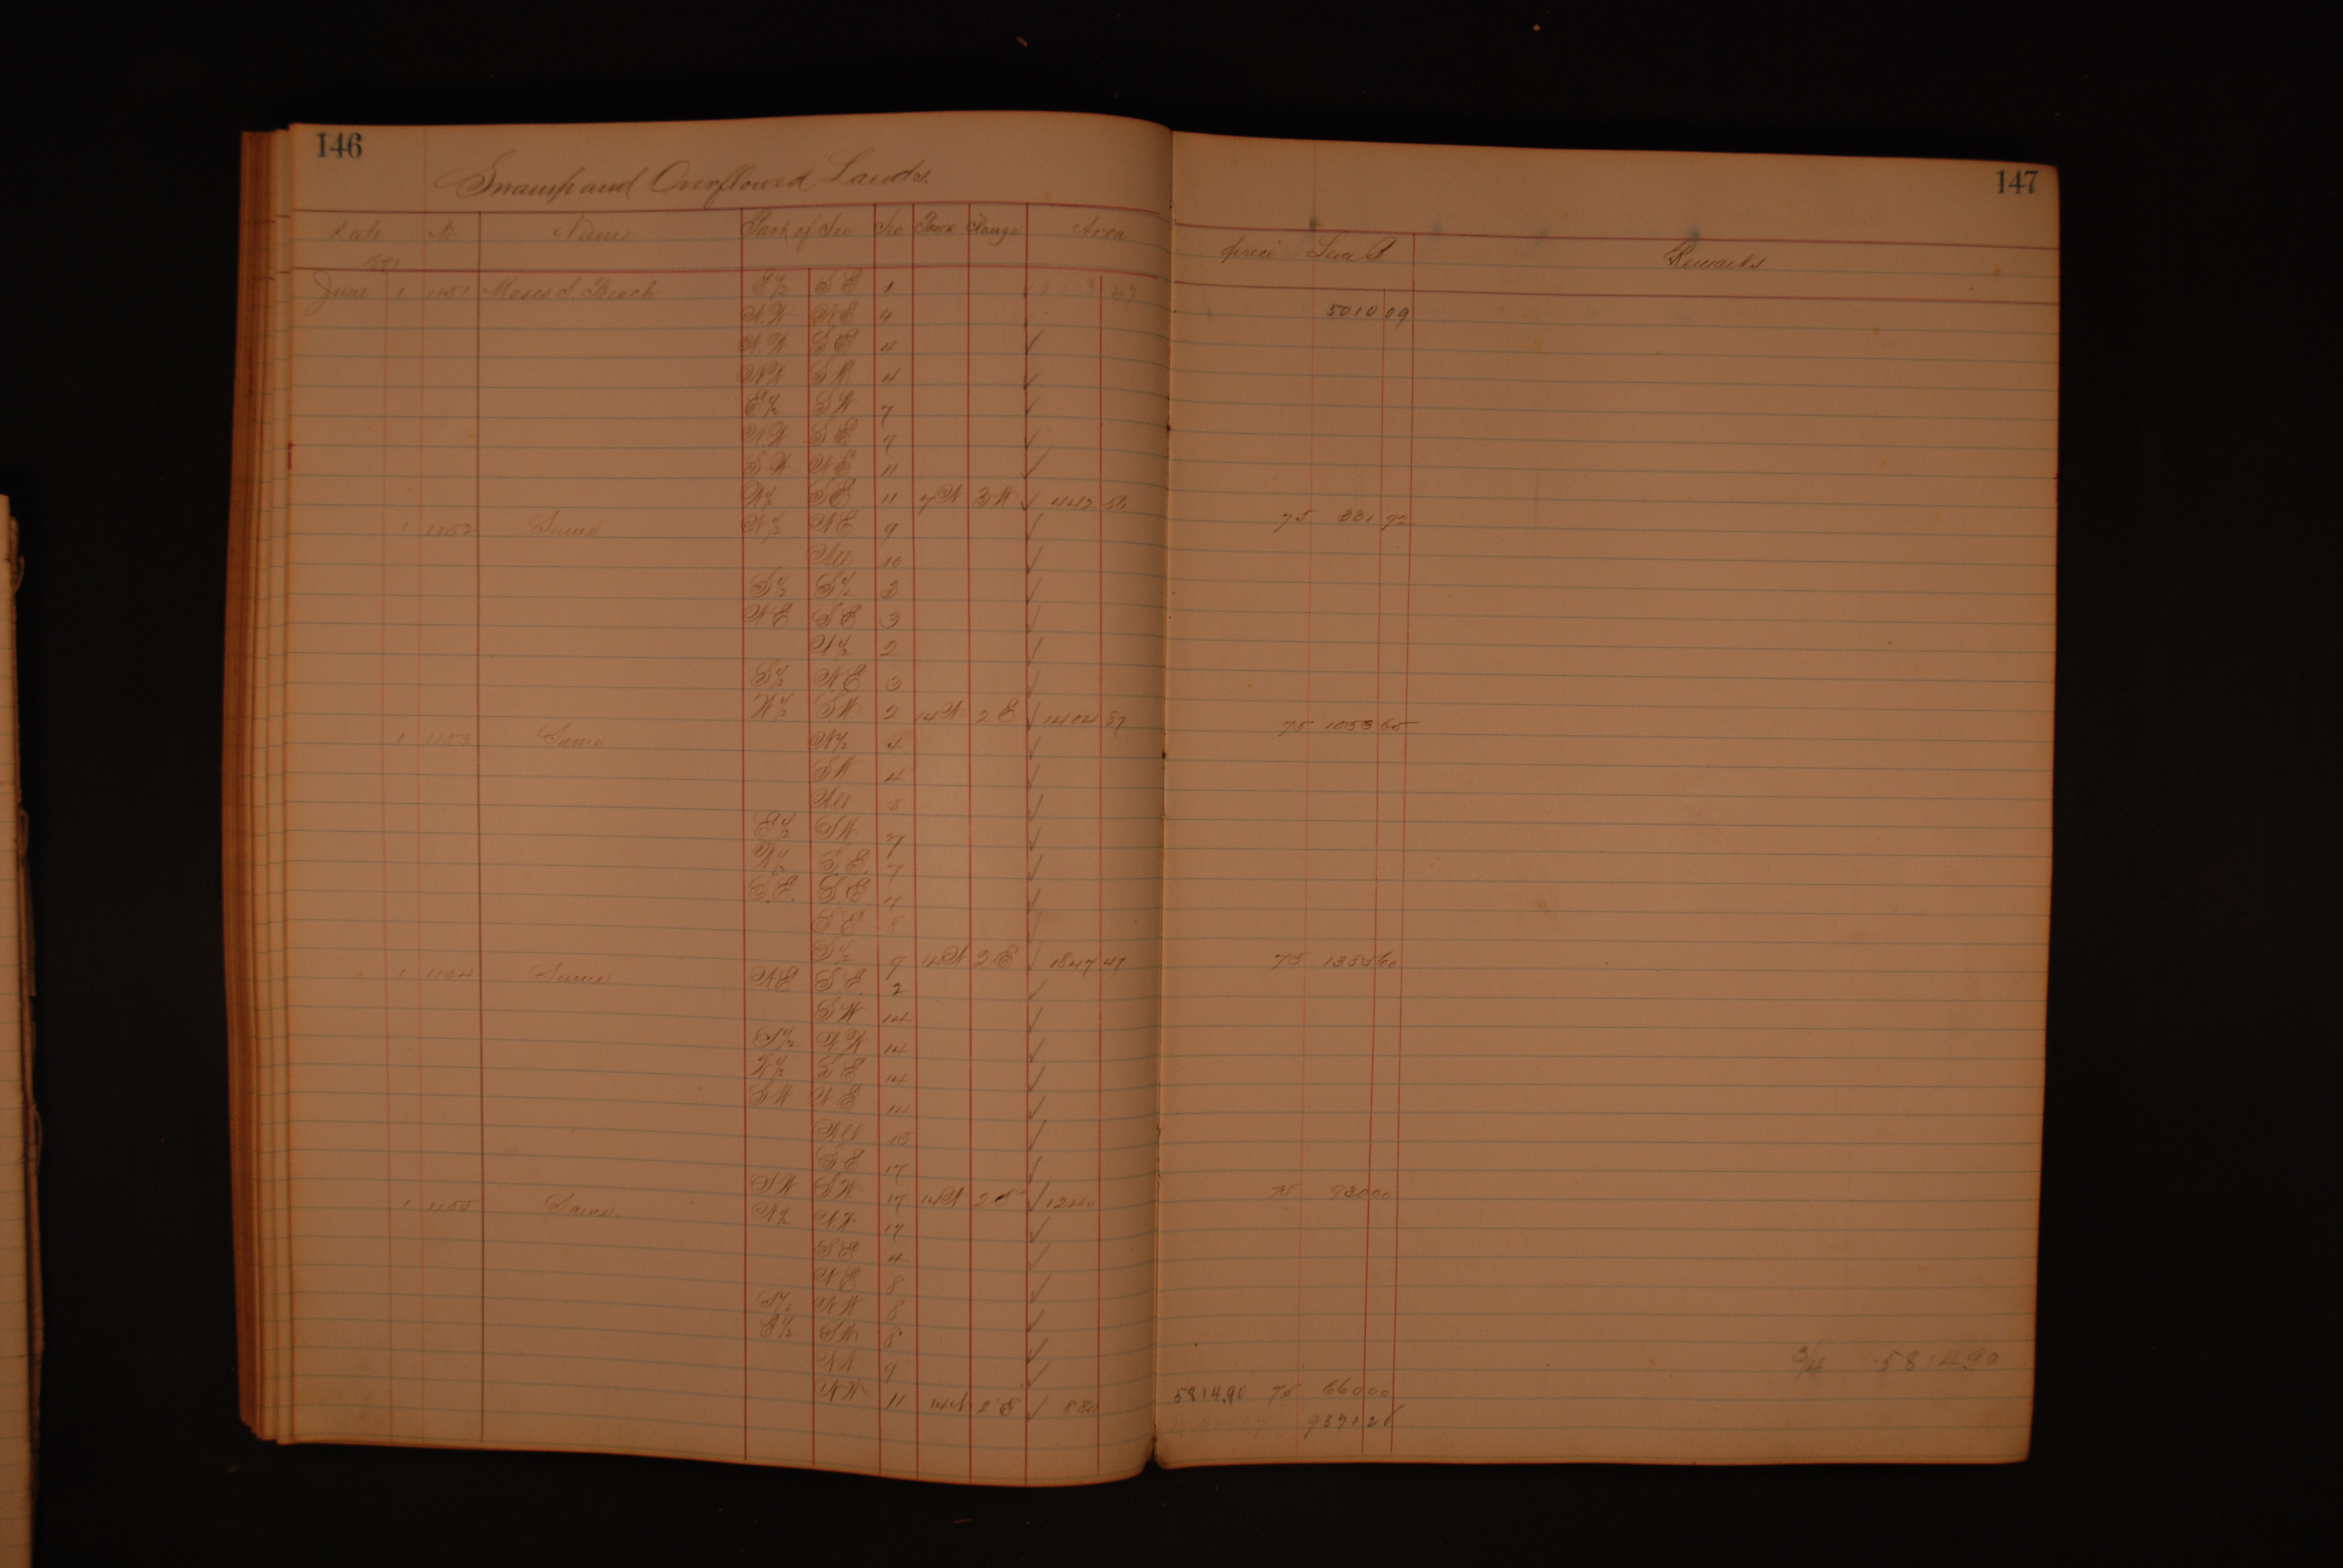 146
Swamp and Overflowed Lands.
Date No Name Part of Sec Sec Town Range Area
June 1 1151 Moses S. Beach E½ SE 1 47
N.W NE 4
N.W SE 4
NW SW 4
E½ SW 7
NW SE 7
SW NE 11
W½ SE 11 7N 3W 442 56
1 1152 Same N½ NE 9
All 10
S½ S½ 3
NE SE 3
N½ 2
S½ N.E. 3
W½ SW 2 14N 2E 1404 87
1 1153 Same N½ 4
SW 4
All 5
E½ SW 7
W½ S.E. 7
S.E. S.E. 7
SE 8
S½ 9 14N 2E 1847 47
1 1154 Same NE SE. 2
SW 14
S½ NW 14
W½ SE 14
SW NE 14
All 15
SE 17
SW SW 17 14N 2E 1240
1 1155 Same. N½ NW 17
SE 4
NE 8
S½ NW 8
E½ SW 8
NW 9
NW 11 14N 2E 880
147
price Remarks
5010 09
75 331 92
75 1053 65
75 1385 60
75 930 00
3/4 5814.90
5814.90 75 660 00
9371 21